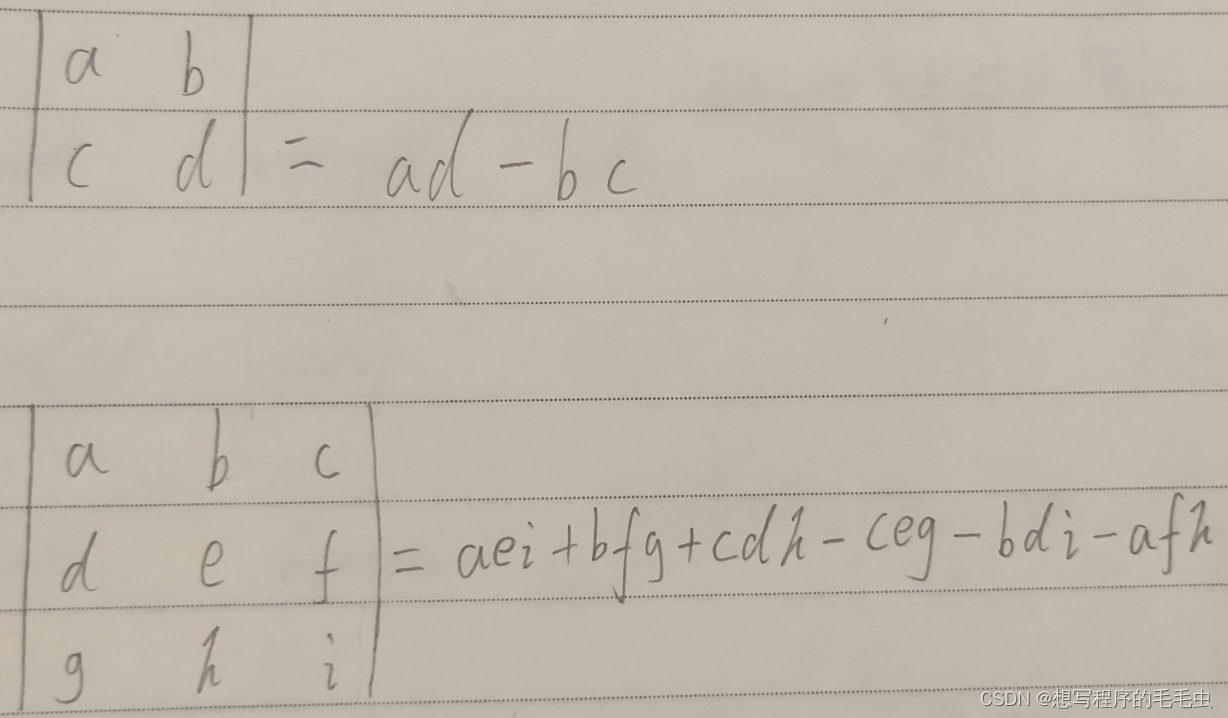 | a b |
| c d | = ad - bc
| a b c |
| d e f | = aei + bfg + cdh - ceg - bdi - afh
| g h i |
CSDN @想写程序的毛毛虫